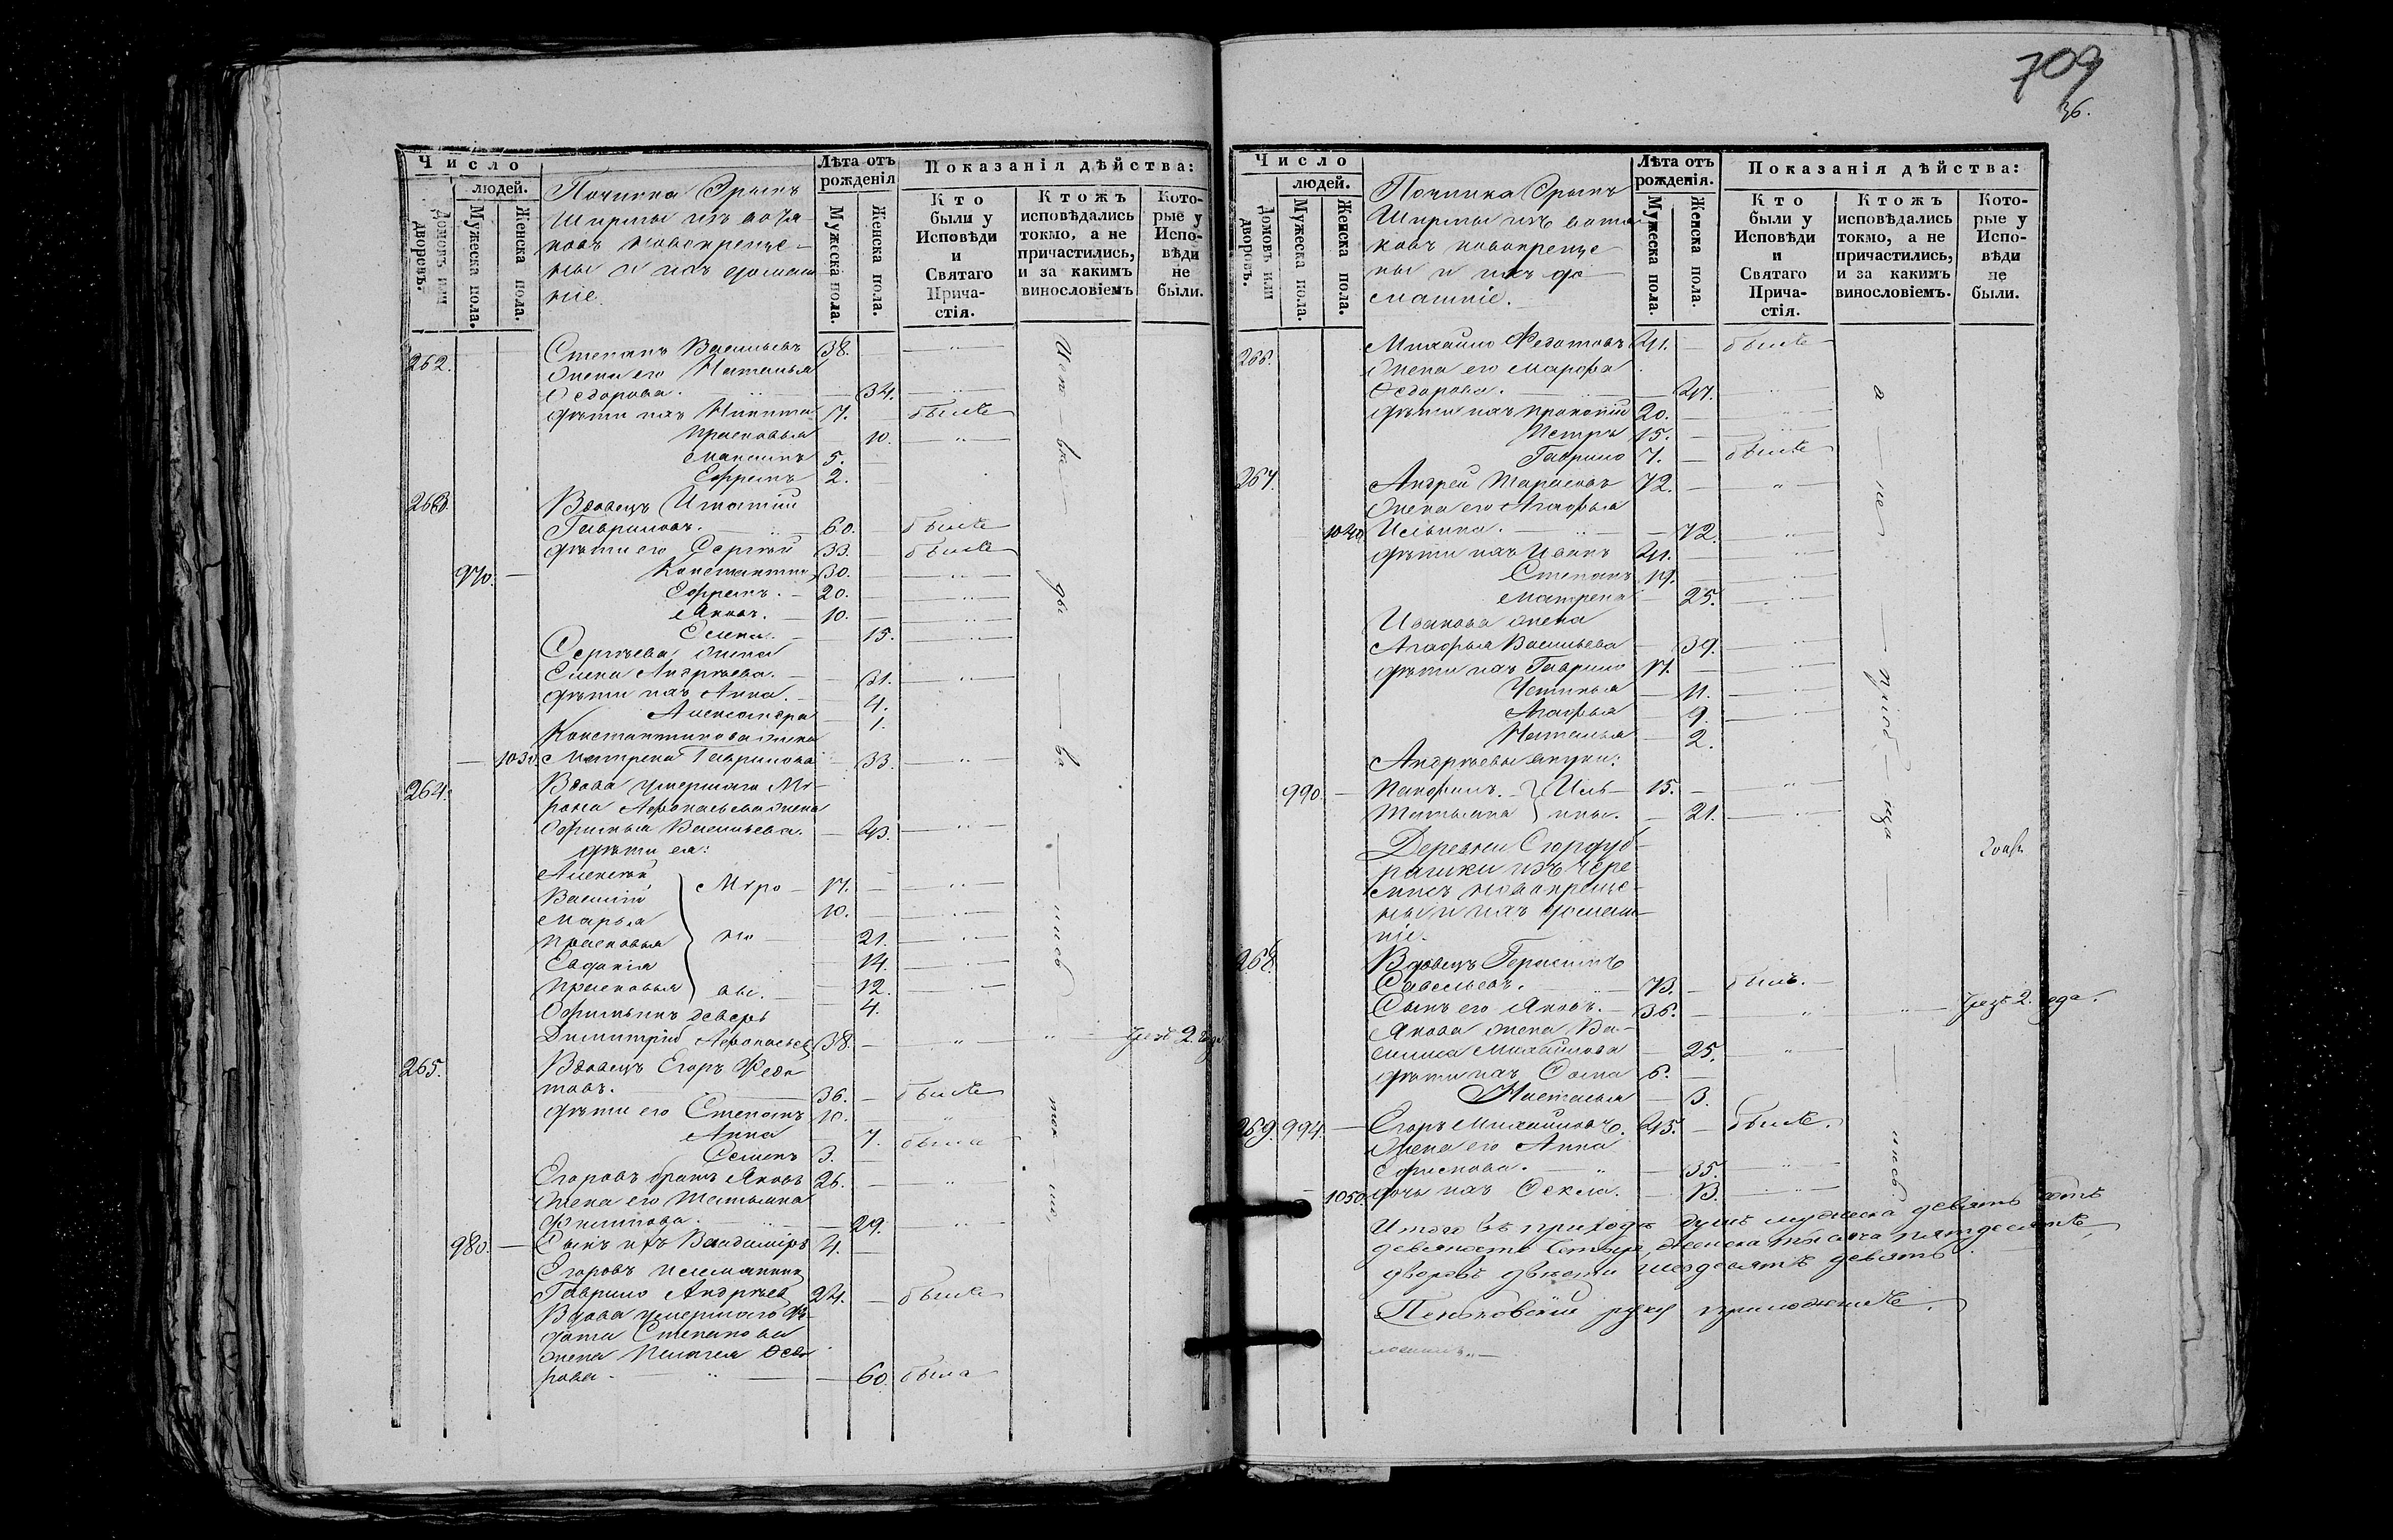 709
36.
Число
людей.
Домовъ или дворовъ.
Мужеска пола.
Женска пола.
Починка Эрыкъ
Ширмы изъ вотя-
ковъ новокреще-
ны и ихъ домаш
ніе.
Лѣта отъ рожденія
Мужеска пола.
Женска пола.
Показанія дѣйства:
Кто были у Исповѣди и Святаго Прича-стія.
Ктожъ исповѣдались токмо, а не причастились, и за какимъ винословіемъ
Кото-рые у Испо-вѣди не были.
262. Степанъ Васильевъ 38. — „ —
Жена его Наталья
Ѳедорова. 34. — „ —
дѣти ихъ Никита 7. былъ
Прасковья 10. — „ —
Максимъ 5.
Ефремъ 2.
263. Вдовецъ Игнатій
Гавриловъ. 60. былъ
дѣти его Сергѣй 33. былъ
970. Константинъ 30. — „ —
Ефремъ. 20. — „ —
Яковъ. 10. — „ —
Елена. 15. — „ —
Сергѣева жена
Елена Андреева. 31. — „ —
дѣти ихъ Анна. 4.
Александра 1.
Константинова жена
1030 Матрена Гаврилова 33. — „ —
264. Вдова умершаго Ми-
рона Афонасьева жена
Офимья Васильева. 43. — „ —
дѣти ея:
Алексѣй Миро- 17. — „ —
Василій 10. — „ —
Марья 21. — „ —
Прасковья но 14. — „ —
Евдокія 12. — „ —
Прасковья вы. 4.
Офимьинъ деверь
Димитрій Афонасьев 38. — „ — „ — чрезъ 2. года
265. Вдовецъ Егоръ Федо
товъ. 36. былъ
дѣти его Степанъ 10. „
Анна 7. была
Семенъ 3.
Егоровъ братъ Яковъ 26. — „ —
Жена его Татьяна
Филипова. 29. — „ —
980. Сынъ ихъ Владиміръ 4.
Егоровъ племянникъ
Гаврило Андреевъ 24. былъ
Вдова умершаго Фе-
дота Степанова
жена Пелагея Ѳедо
рова 60. была
Число
людей.
Домовъ или дворовъ.
Мужеска пола.
Женска пола.
Починка Эрыкъ
Ширмы изъ вотя
ковъ новокреще
ны и ихъ до
машніе.
Лѣта отъ рожденія.
Мужеска пола.
Женска пола.
Показанія дѣйства:
Кто были у Исповѣди и Святаго Прича-стія.
Ктожъ исповѣдались токмо, а не причастились, и за какимъ винословіемъ.
Кото-рые у Испо-вѣди не были.
266. Михайло Федотовъ 41. былъ
Жена его Марфа
Ѳедорова. 47. „
дѣти ихъ Прокопій 20. „
Петръ 15. „
Гаврило 7. былъ
267. Андрей Тарасовъ 72. „
Жена его Агафья
1040 Ильина. 72. „
дѣти ихъ Иванъ 41. „
Степанъ 19. „
Матрена 25. „
Иванова жена
Агафья Васильева 39. „
дѣти ихъ Гаврило 17. „
Устинья 11. „
Агафья 9. „
Наталья 2.
Андреевы внуки:
990. Панфилъ. Иль- 15. „
Татьяна ины. 21. „
Деревни
рашки изъ чере
мисъ новокреще-
ны и ихъ домаш-
ніе.
268. Вдовецъ Герасимъ
Савельевъ. 73. былъ.
Сынъ его Яковъ. 36. „ „ чрезъ 2. года.
Якова жена Ва-
силиса Михайлова 25. „
дѣти ихъ Савва 6.
Настасья 3.
269. 994. Егоръ Михайловъ. 45. былъ.
Жена его Анна
Ефимова. 35. „
1050. дочь ихъ Ѳекла. 13. „
Итого въ приходѣ душъ мужеска девять сотъ
девяносто четыре, женска тысяча пятдесятъ,
дворовъ двѣсти шесдесятъ девять.
руку приложилъ.